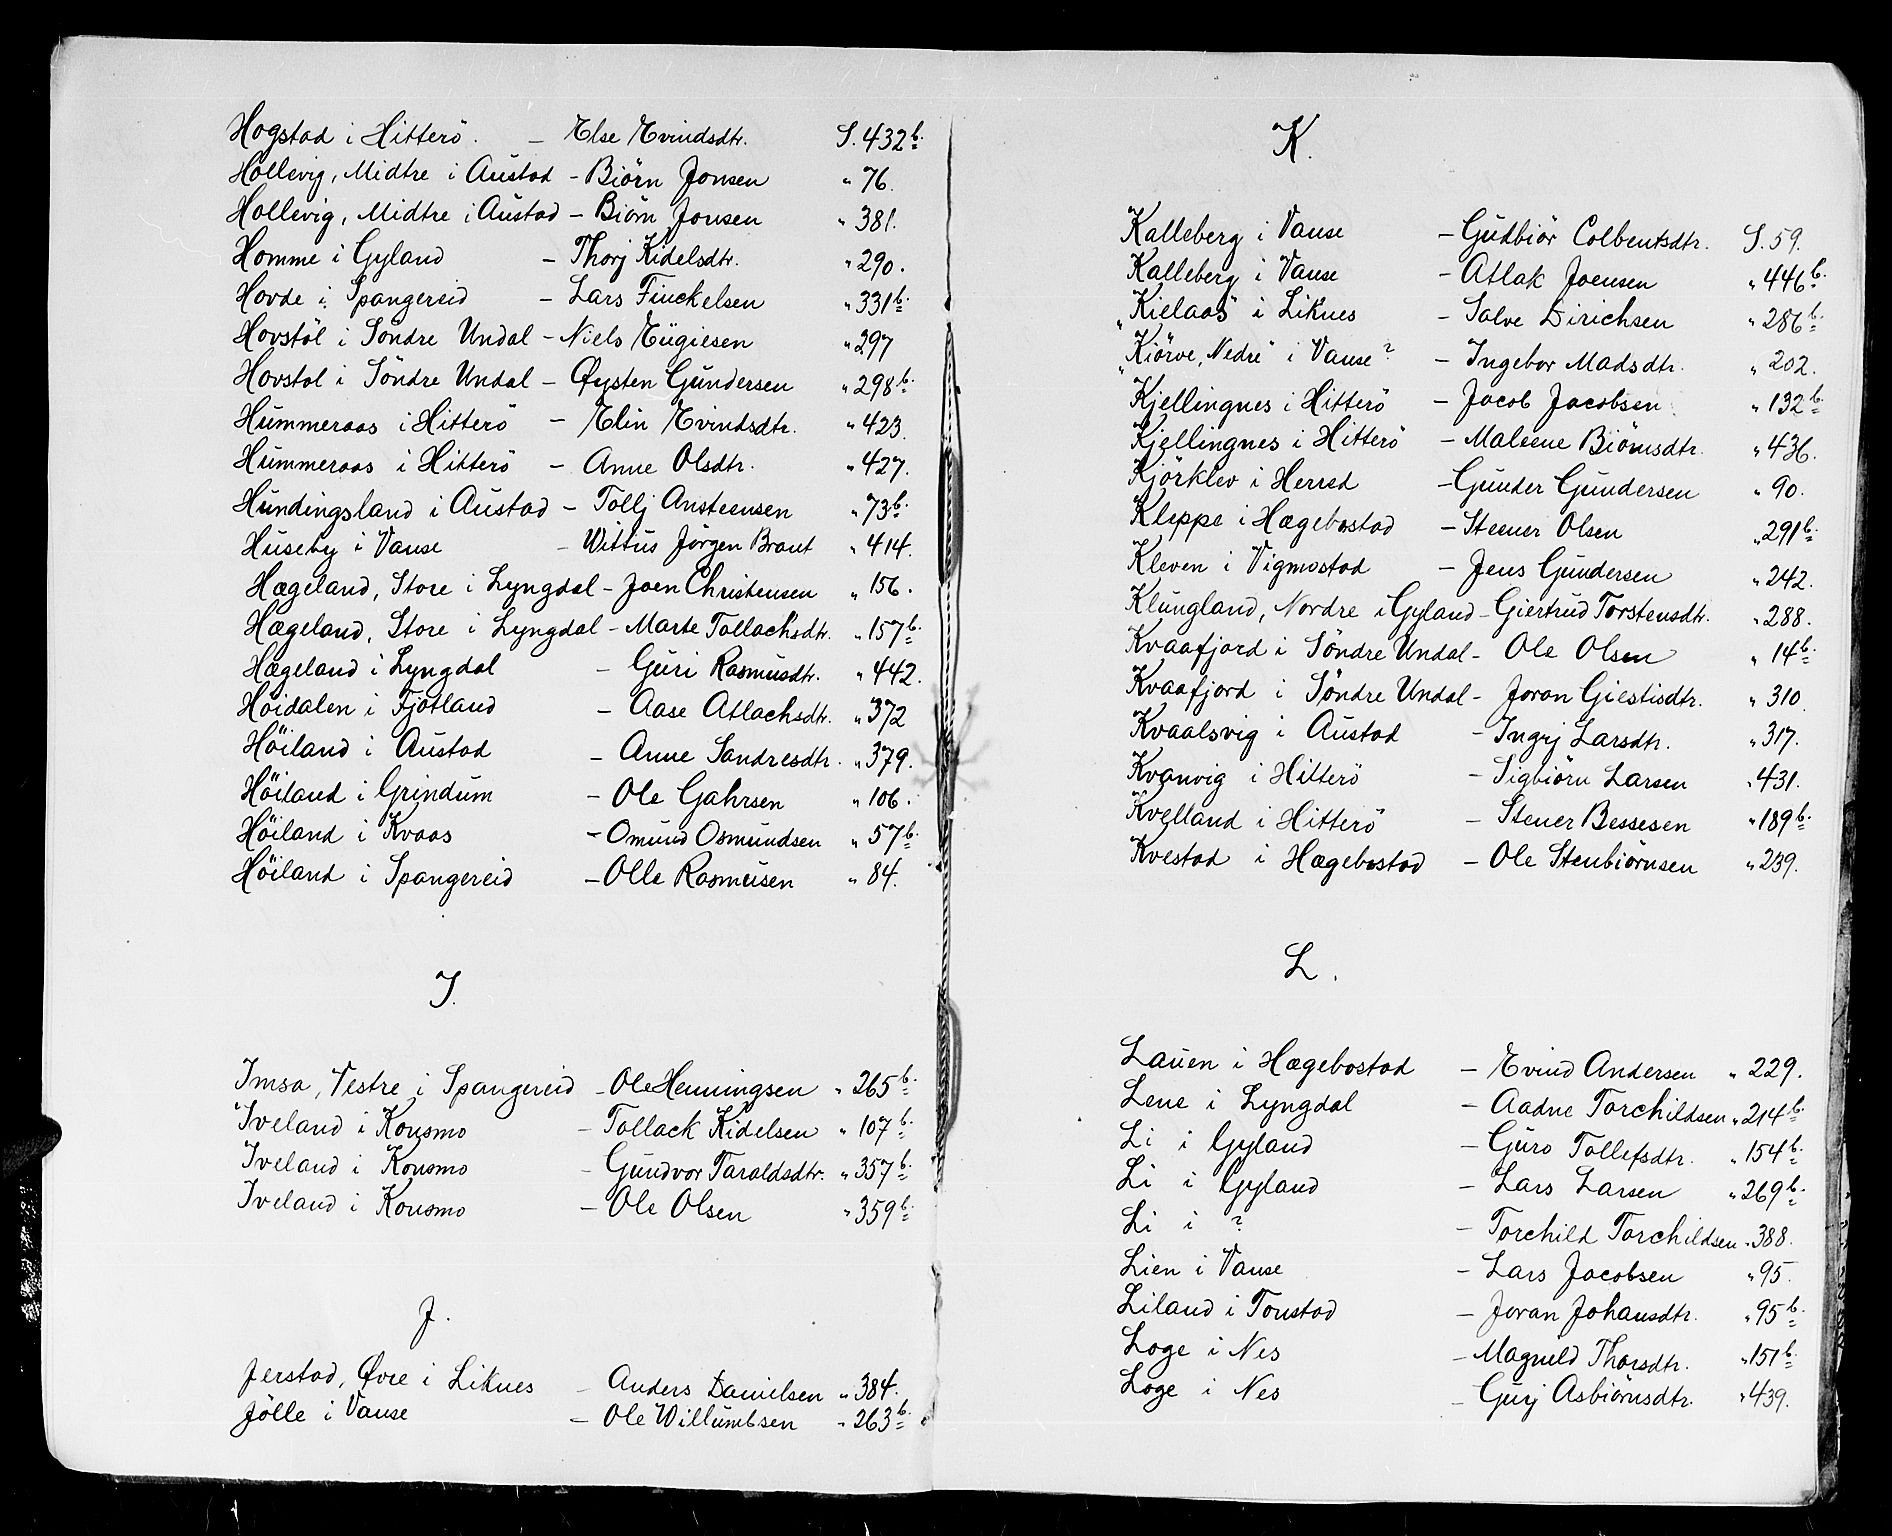 Hogstad i Hitterö. — Else Evindsdtr. S. 432b.
Hollevig, Midtre i Austad — Biörn Jonsen " 76.
Hollevig, Midtre i Austad — Biörn Jonsen " 381.
Homme i Gyland — Thorj Kidelsdtr. " 290.
Hovde i Spangereid — Lars Finckelsen " 331b.
Hovstöl i Söndre Undal — Niels Eügiesen " 297
Hovstol i Söndre Undal — Øysten Gündersen " 298b.
Hummeraas i Hitterö — Elin Evindsdtr. " 423.
Hummeraas i Hitterö — Anne Olsdtr. " 427.
Hundingsland i Austad — Tollj Ansteensen " 73b.
Huseby i Vanse — Wittus Jörgen Braut " 414.
Hægeland, Store i Lyngdal — Joen Christensen " 156.
Hægeland, Store i Lyngdal — Marte Tollachsdtr. " 157b.
Hægeland i Lyngdal — Guri Rasmusdtr. " 442.
Höidalen i Fjotland — Aase Atlachsdtr. " 372
Höiland i Austad — Anne Sandresdtr. " 379.
Höiland i Grindum — Ole Gahrsen " 106.
Höiland i Kvaas — Omund Osmundsen " 57b.
Höiland i Spangereid — Olle Rasmusen " 84.
I.
Imsa, Vestre i Spangereid — Ole Henningsen " 265b.
Iveland i Konsmo — Tollack Kidelsen " 107b.
Iveland i Konsmo — Gundvor Taraldsdtr. " 357b.
Iveland i Konsmo — Ole Olsen " 359b.
J.
Jerstad, Øvre i Liknes — Anders Danielsen " 384.
Jölle i Vanse — Ole Willumbsen " 263b.
K.
Kalleberg i Vanse — Gudbiör Colbentsdtr. S. 59.
Kalleberg i Vanse — Atlak Joensen " 446b.
"Kielaas" i Liknes — Salve Dirichsen " 286b.
"Kiörve, Nedre" i Vanse? — Ingebor Madsdtr. " 202.
Kjellingnes i Hitterö — Jacob Jacobsen " 132b.
Kjellingnes i Hitterö — Maleene Biörnsdtr. " 436.
Kjörklev i Herred — Gunder Gundersen " 90.
Kleppe i Hægebostad — Steener Olsen " 291b.
Kleven i Vigmostad — Jens Gundersen " 242.
Klungland, Nordre i Gyland — Giertrud Torstensdtr. " 288.
Kvaafjord i Söndre Undal — Ole Olsen " 14b.
Kvaafjord i Söndre Undal — Joran Giestisdtr. " 310
Kvaalsvig i Austad — Ingrj Larsdtr. " 317.
Kvanvig i Hitterö — Sigbiörn Larsen " 431.
Kvelland i Hitterö — Stener Bessesen " 189b.
Kvestad i Hægebostad — Ole Stenbiörnsen " 239.
L.
Lauen i Hægebostad — Evind Andersen " 229.
Lene i Lyngdal — Aadne Torchildsen " 214b.
Li i Gyland — Guro Tollefsdtr. " 154b.
Li i Gyland — Lars Larsen " 269b.
Li i ? — Torchild Torchildsen " 388.
Lien i Vanse — Lars Jacobsen " 95.
Liland i Tonstad — Joran Johansdtr. " 95b.
Loge i Nes — Magnild Thorsdtr. " 151b.
Loge i Nes — Gurj Asbiörnsdtr. " 439.